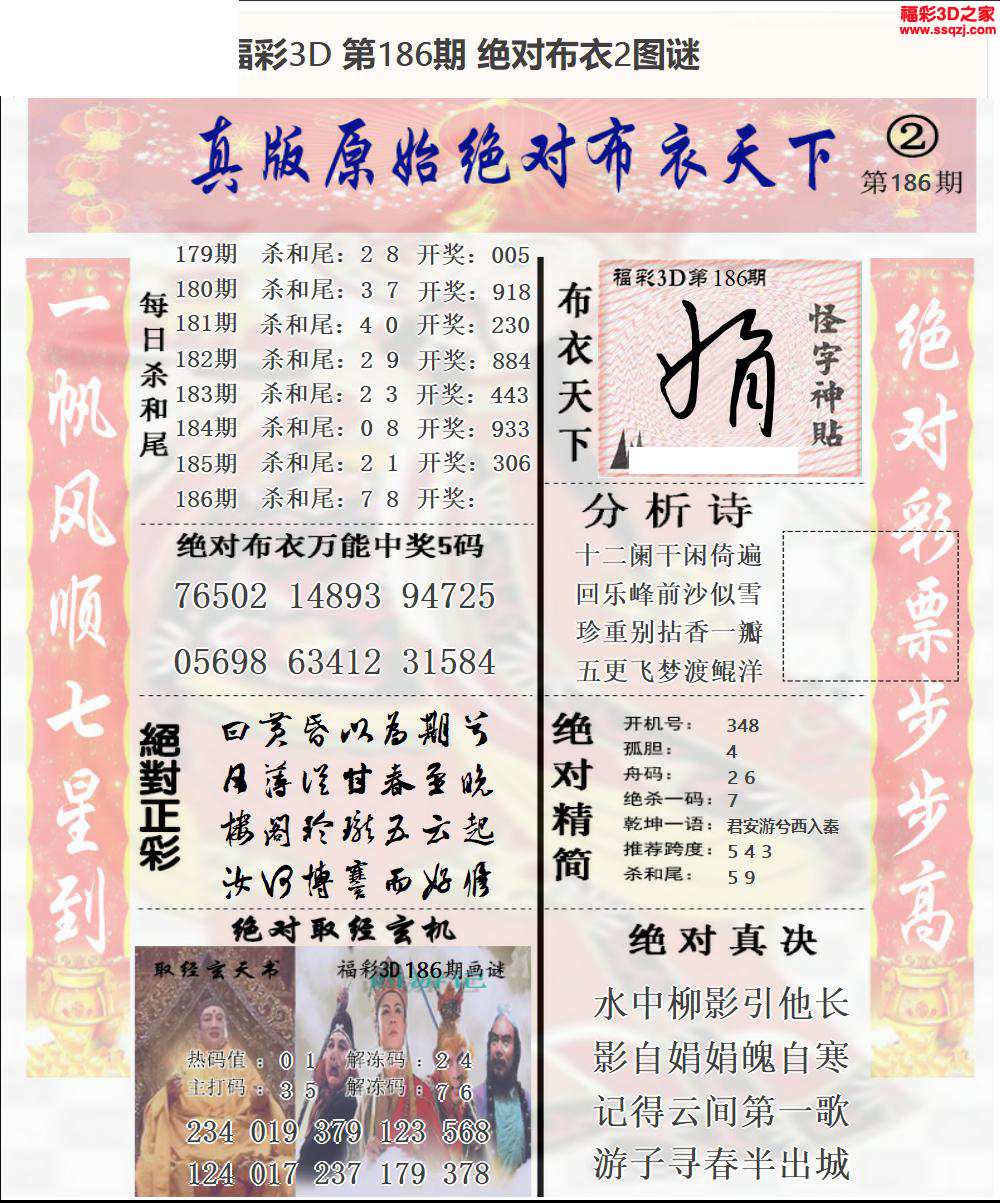 福彩3D之家
www.ssqzj.com
福彩3D 第186期 绝对布衣2图谜
真版原始绝对布衣天下
②
第186期
一帆风顺七星到
每日杀和尾
179期 杀和尾：2 8 开奖：005
180期 杀和尾：3 7 开奖：918
181期 杀和尾：4 0 开奖：230
182期 杀和尾：2 9 开奖：884
183期 杀和尾：2 3 开奖：443
184期 杀和尾：0 8 开奖：933
185期 杀和尾：2 1 开奖：306
186期 杀和尾：7 8 开奖：
绝对布衣万能中奖5码
76502 14893 94725
05698 63412 31584
絕對正彩
曰黄昏以为期兮
月薄从甘春至晚
楼阁玲珑五云起
汝何博謇而好修
绝对取经玄机
取经玄天书
福彩3D186期画谜
热码值：0 1 解冻码：2 4
主打码：3 5 解冻码：7 6
234 019 379 123 568
124 017 237 179 378
布衣天下
福彩3D第186期
娟
怪字神贴
分析诗
十二阑干闲倚遍
回乐峰前沙似雪
珍重别拈香一瓣
五更飞梦渡鲲洋
绝对精简
开机号：348
孤胆：4
舟码：2 6
绝杀一码：7
乾坤一语：君安游兮西入秦
推荐跨度：5 4 3
杀和尾：5 9
绝对真决
水中柳影引他长
影自娟娟魄自寒
记得云间第一歌
游子寻春半出城
绝对彩票步步高